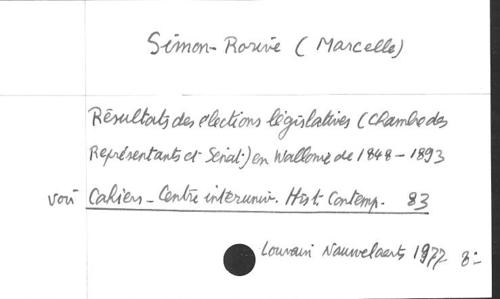 Simon-Rozive (Marcelle)
Résultats des élections législatives (Chambre des
Représentants et Sénat) en Wallonie de 1848-1893
voir Cahiers - Centre interuniv. Hist. Contemp. 83
Louvain Nauwelaerts 1977 8°